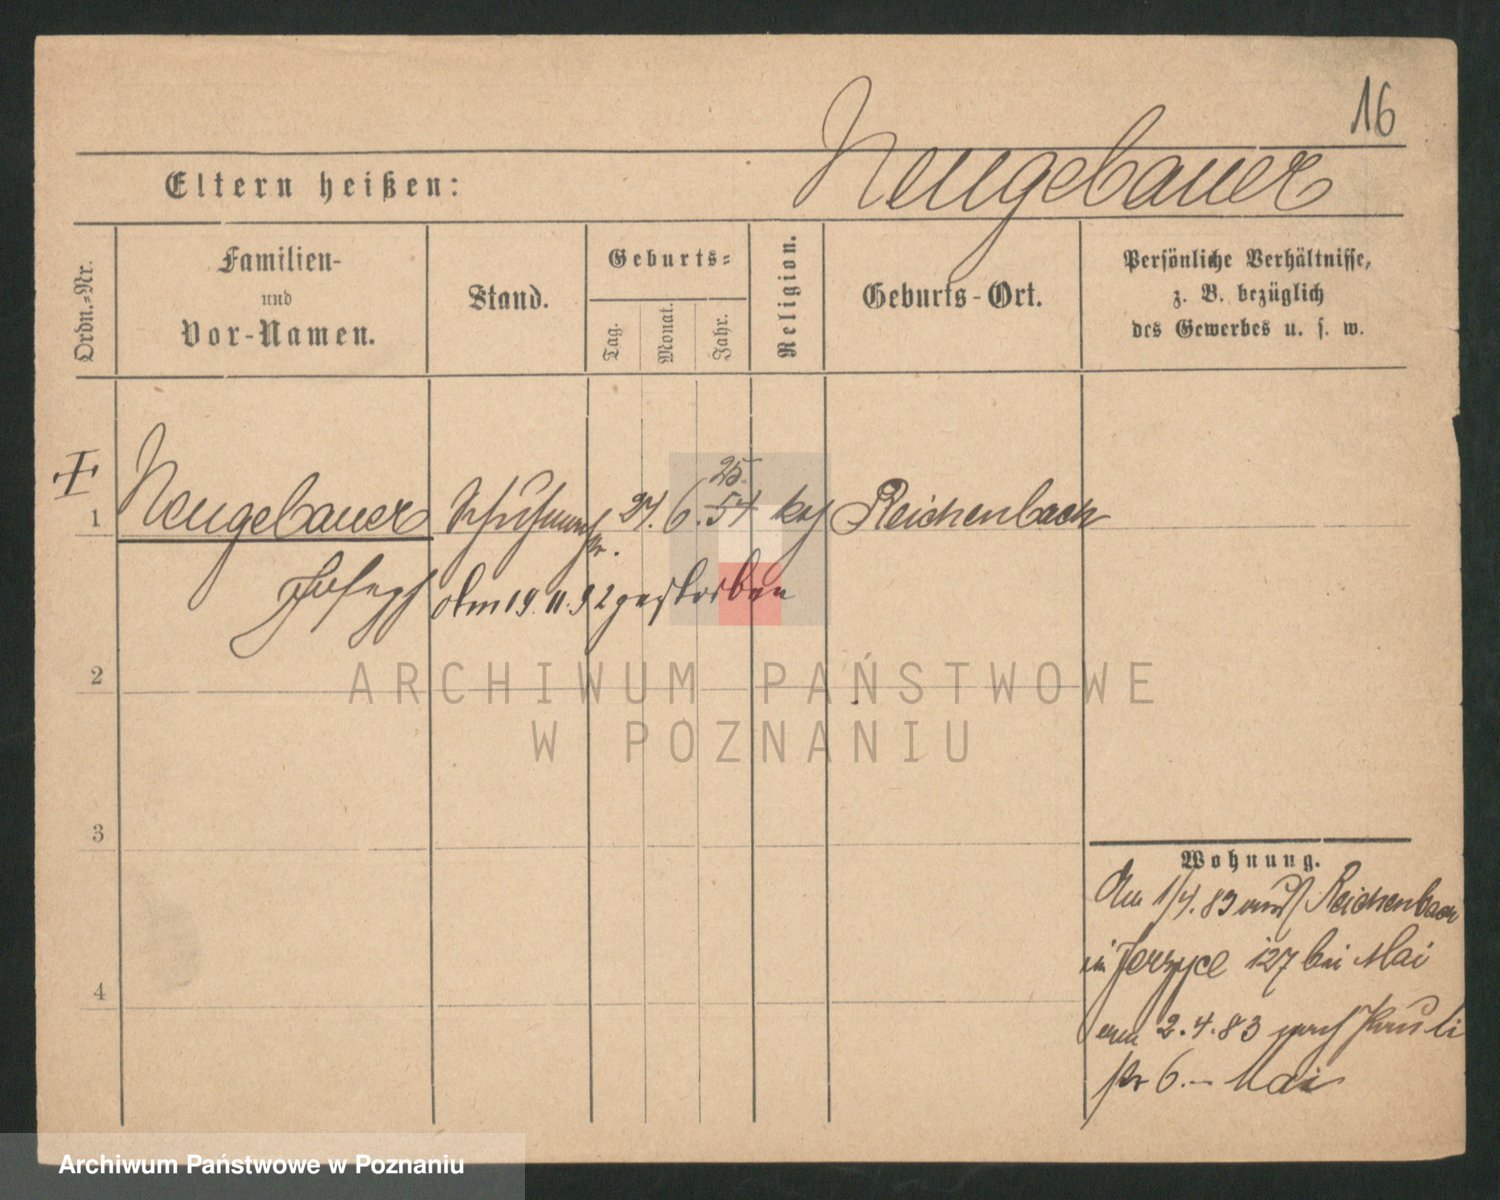 16
Neugebauer
Eltern heißen:
Ordn.-Nr.
Familien-
und
Vor-Namen.
Stand.
Geburts-
Tag.
Monat.
Jahr.
Religion.
Geburts-Ort.
Persönliche Verhältnisse,
z. B. bezüglich
des Gewerbes u. s. w.
25.
1 Neugebauer 6. 54 kath Reichenbach
Joseph
am 19. 11. 92 gestorben
2
3
4
ARCHIWUM PAŃSTWOWE
W POZNANIU
Wohnung.
Am 1/4. 83 aus Reichenbach
in Jerzyce 127 bei Mai
am 2. 4. 83 nach Pauli
str 6. — Mai
Archiwum Państwowe w Poznaniu